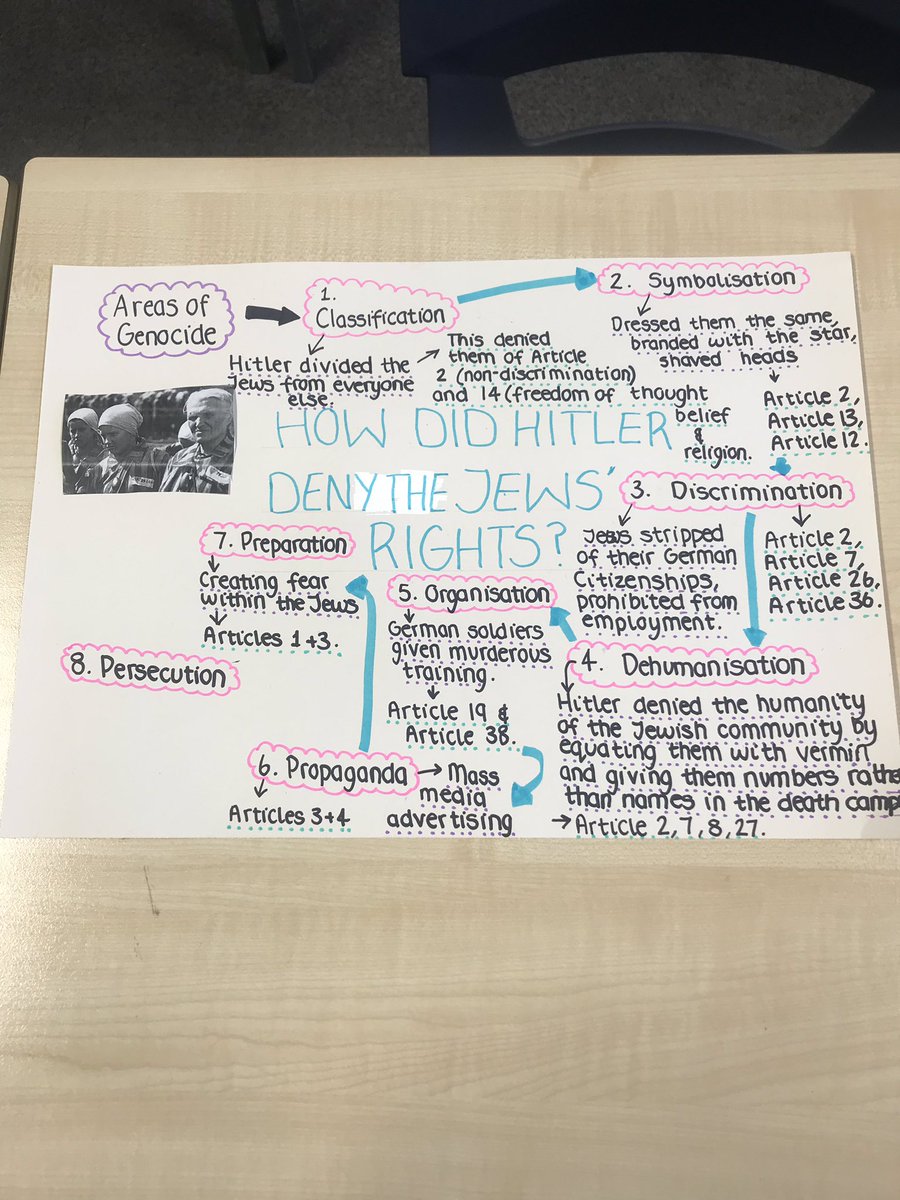 Areas of
Genocide
1.
Classification
Hitler divided the
Jews from everyone
else.
This denied
them of Article
2 (non-discrimination)
and 14 (freedom of thought
belief
&
religion.
2. Symbolisation
Dressed them the same,
branded with the star,
shaved heads
Article 2,
Article 13,
Article 12.
HOW DID HITLER
DENY THE JEWS'
RIGHTS?
3. Discrimination
Jews stripped
of their German
Citizenships,
prohibited from
employment.
Article 2,
Article 7,
Article 26,
Article 36.
4. Dehumanisation
Hitler denied the humanity
of the Jewish community by
equating them with vermin
and giving them numbers rathe
than names in the death camp
Article 2, 7, 8, 27.
5. Organisation
German soldiers
given murderous
training.
Article 19 &
Article 38.
6. Propaganda
Mass
media
advertising
Articles 3+4
7. Preparation
Creating fear
within the Jews
Articles 1+3.
8. Persecution